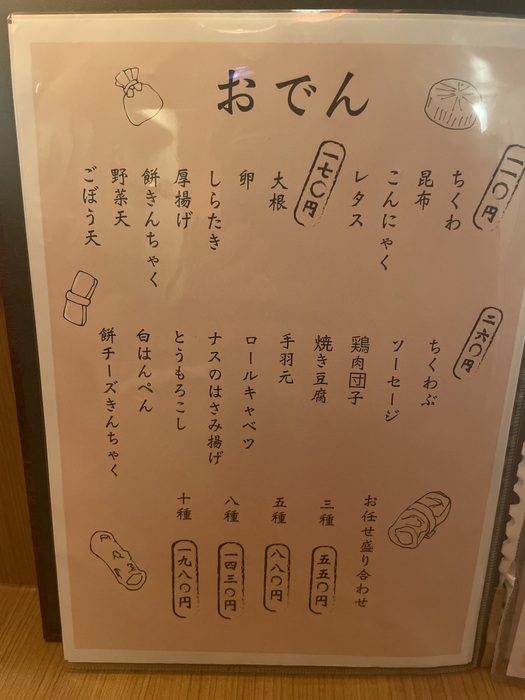 おでん
一一〇円
ちくわ
昆布
こんにゃく
レタス
一七〇円
大根
卵
しらたき
厚揚げ
餅きんちゃく
野菜天
ごぼう天
二六〇円
ちくわぶ
ソーセージ
鶏肉団子
焼き豆腐
手羽元
ロールキャベツ
ナスのはさみ揚げ
とうもろこし
白はんぺん
餅チーズきんちゃく
お任せ盛り合わせ
三種 五五〇円
五種 八八〇円
八種 一四三〇円
十種 一九八〇円